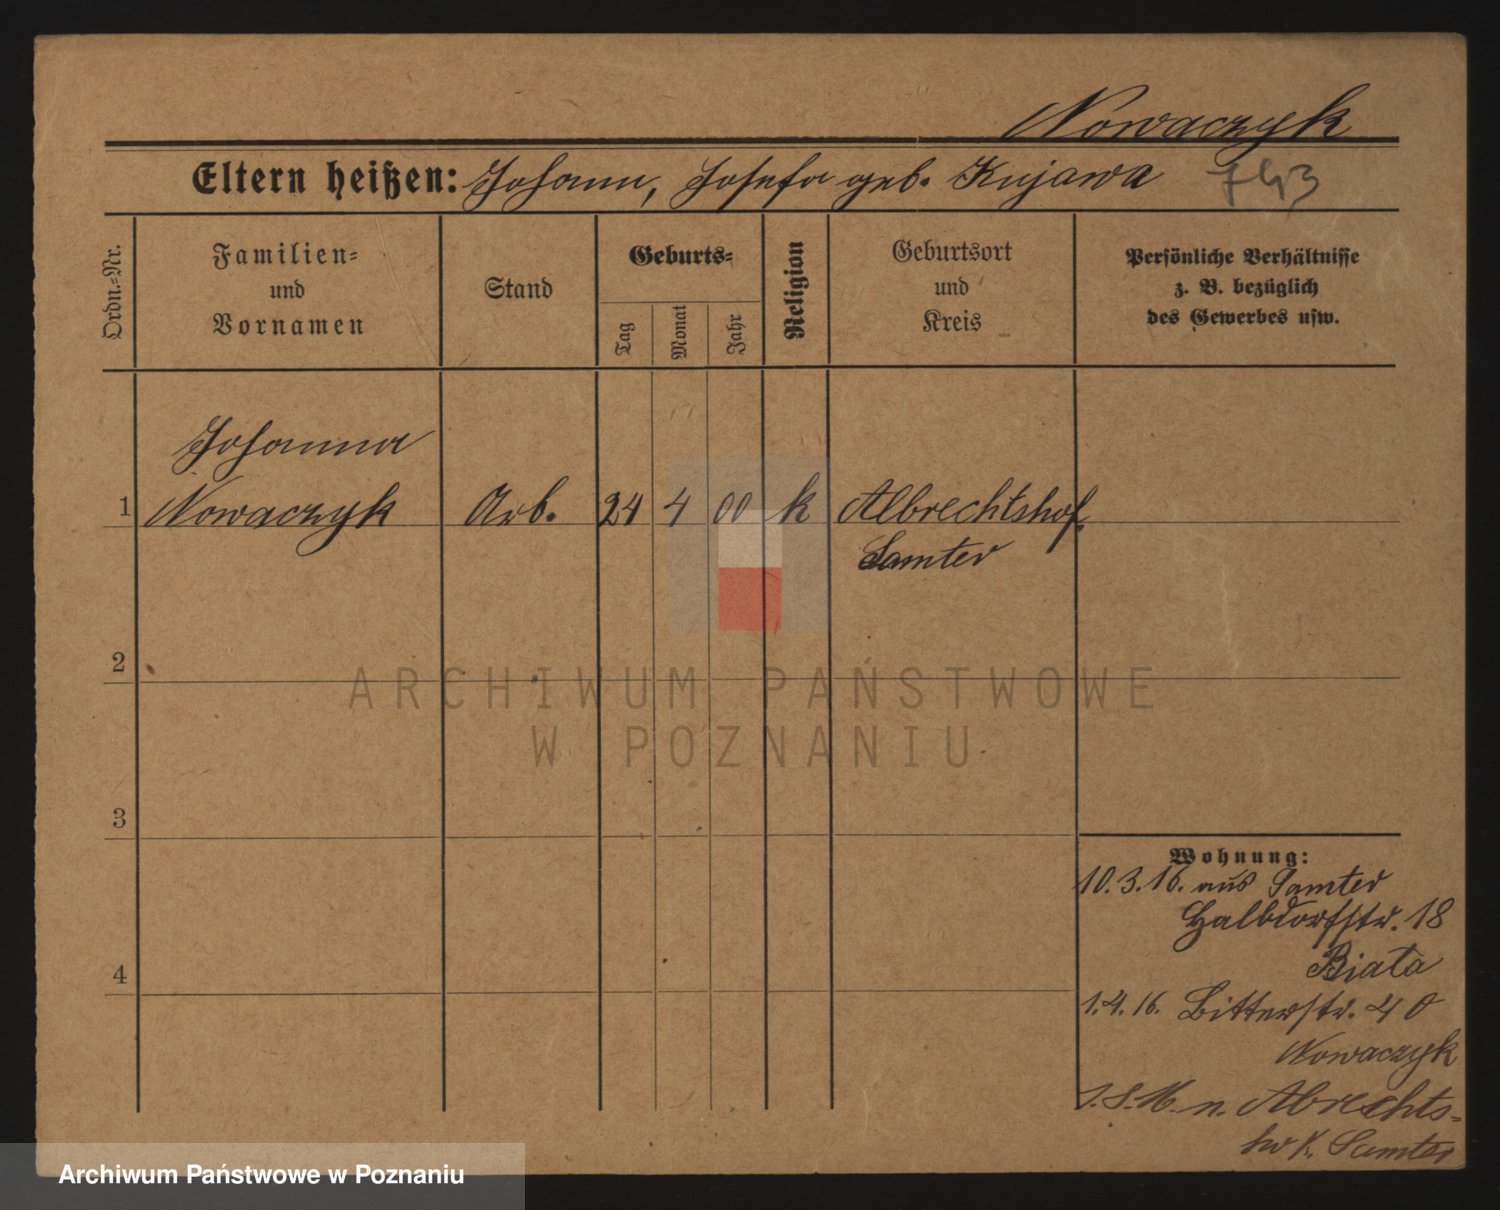 Nowaczyk
Eltern heißen: Johann, Josefa geb. Kujawa 743
Ordn.-Nr.
Familien-
und
Vornamen
Stand
Geburts-
Tag
Monat
Jahr
Religion
Geburtsort
und
Kreis
Persönliche Verhältnisse
z. B. bezüglich
des Gewerbes usw.
Johanna
1 Nowaczyk Arb. 24 4 00 k Albrechtshof
Samter
2
ARCHIWUM PAŃSTWOWE
W POZNANIU
3
Wohnung:
10.3.16. aus Samter
Halbdorfstr. 18
Biata
4
1.4.16. Bitterstr. 40
Nowaczyk
n. Albrechts-
K. Samter
Archiwum Państwowe w Poznaniu